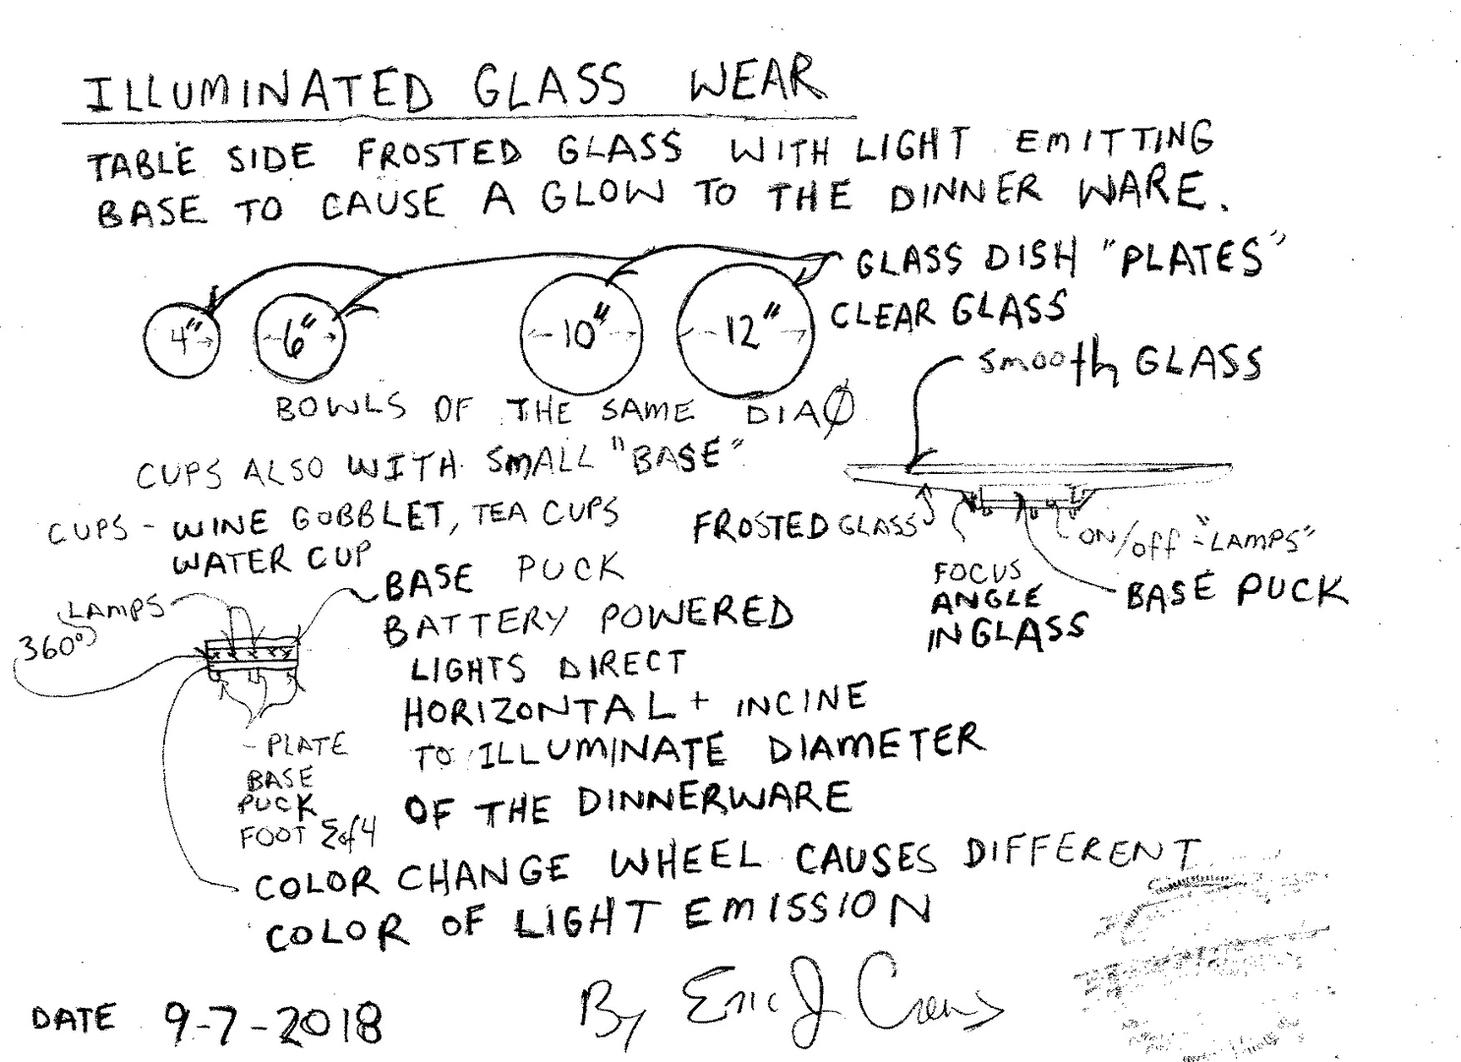 ILLUMINATED GLASS WEAR
TABLE SIDE FROSTED GLASS WITH LIGHT EMITTING
BASE TO CAUSE A GLOW TO THE DINNER WARE.
GLASS DISH "PLATES"
4" 6" 10" 12" CLEAR GLASS
smooth GLASS
BOWLS OF THE SAME DIAØ
CUPS ALSO WITH SMALL "BASE"
CUPS - WINE GOBBLET, TEA CUPS
WATER CUP
FROSTED GLASS
ON/Off - "LAMPS"
FOCUS
ANGLE
IN GLASS
BASE PUCK
LAMPS
360°
BASE PUCK
BATTERY POWERED
LIGHTS DIRECT
HORIZONTAL + INCINE
TO ILLUMINATE DIAMETER
OF THE DINNERWARE
- PLATE
BASE
PUCK
FOOT Σof4
COLOR CHANGE WHEEL CAUSES DIFFERENT
COLOR OF LIGHT EMISSION
By Eric J
DATE 9-7-2018